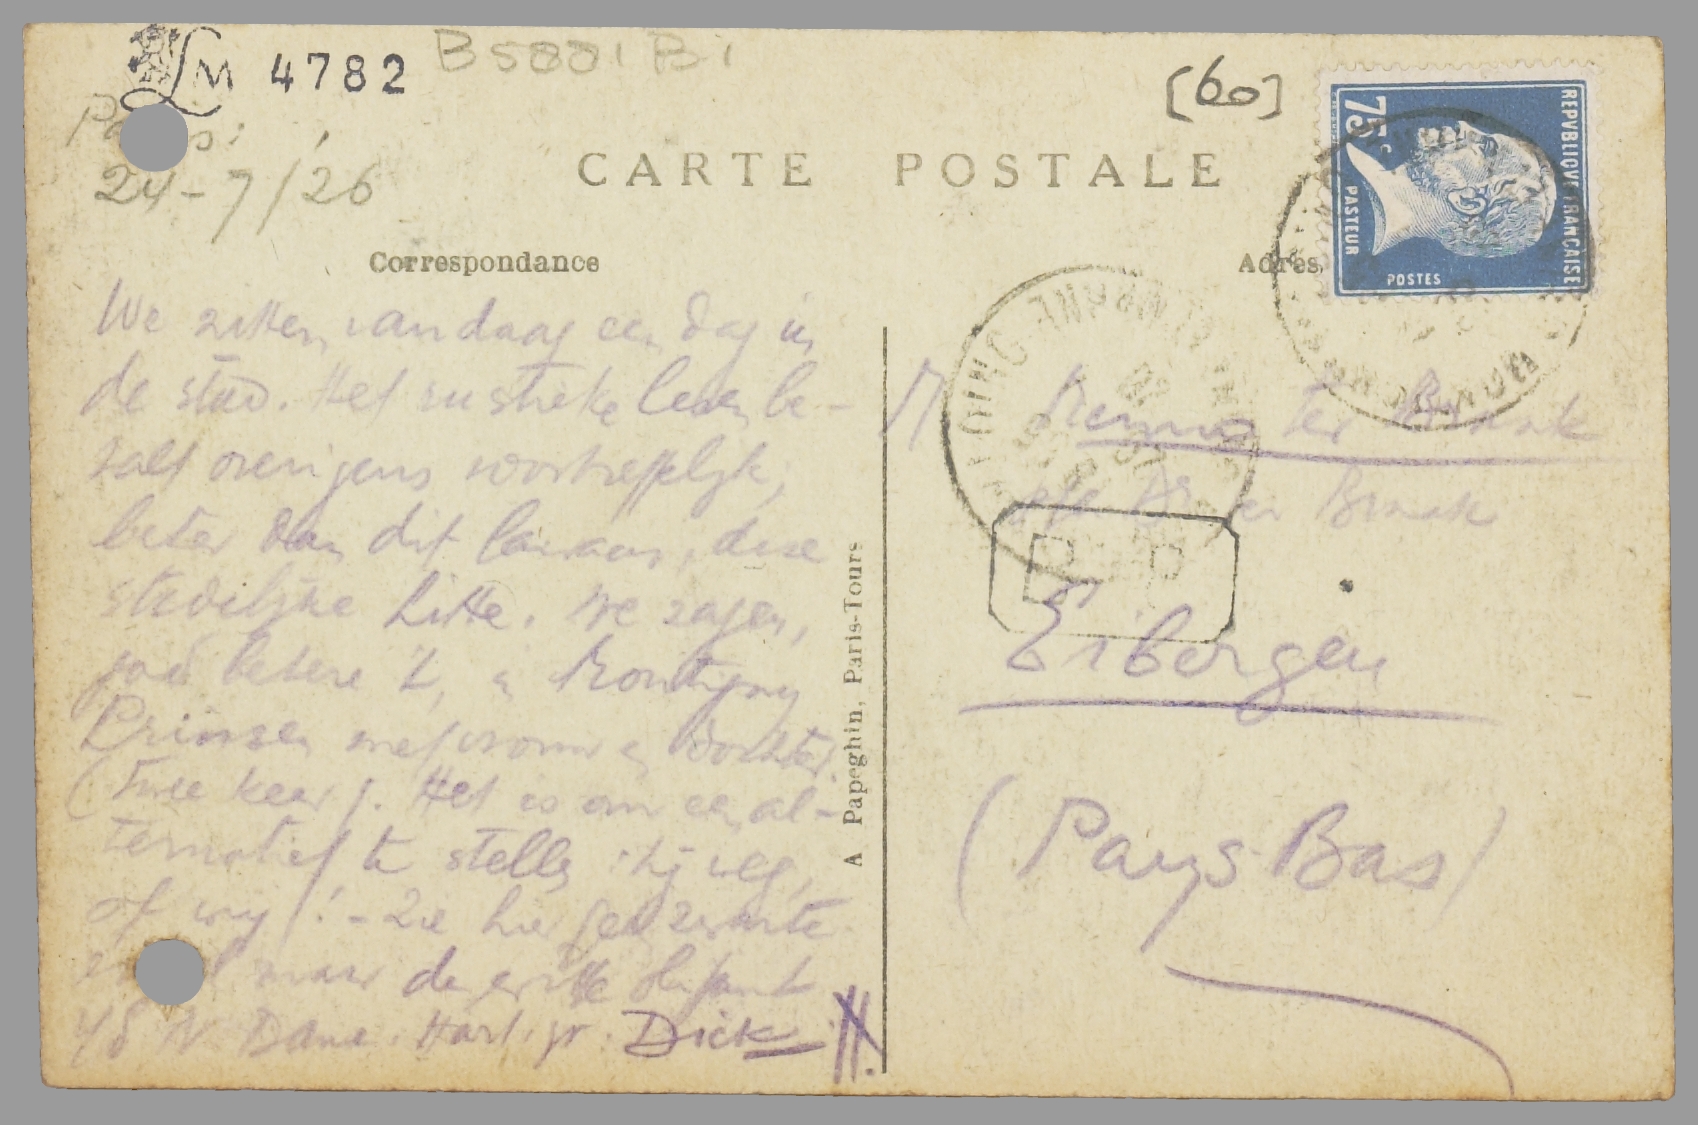 LM 4782 B5881 B1
[60]
Parijs:
24-7/26
CARTE POSTALE
REPVBLIQVE FRANCAISE
75c
PASTEUR
POSTES
Correspondance
Adres
We zitten vandaag een dag in
de stad. Het rustieke leven be-
valt overigens voortreffelijk,
beter dan dit lawaai, deze
stedelijke hitte. We zagen,
god betere 't, in Montigny
Prinsen met vrouw en dochter
(twee keer). Het is om een al-
ternatief te stellen: hij weg,
of wij! - Zie hier geen zwarte
maar de witte olifant
v/d N. Dame. Hart. gr. Dick H.
A Papeghin, Paris-Tours
M Menno ter Braak
p/a Dr ter Braak
Eibergen
(Pays-Bas)